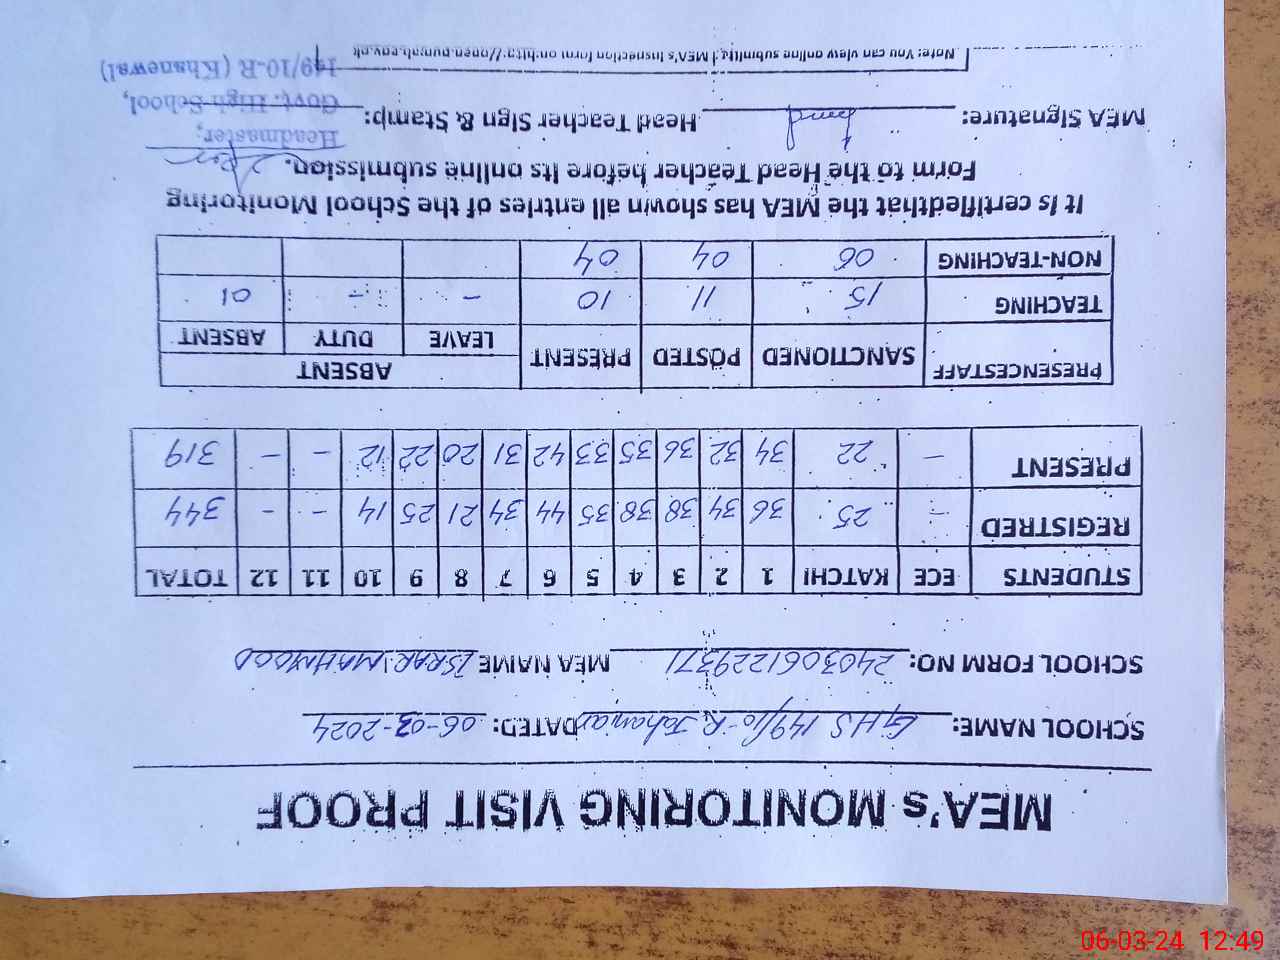 MEA's MONITORING VISIT PROOF
SCHOOL NAME: GHS 149/10-R Jahanian DATED: 06-03-2024
SCHOOL FORM NO: 240306122937 1 MEA NAME ISRAR MAHMOOD
STUDENTS ECE KATCHI 1 2 3 4 5 6 7 8 9 10 11 12 TOTAL
REGISTRED - 25 36 34 38 38 35 44 34 21 25 14 - - 344
PRESENT - 22 34 32 36 35 33 42 31 20 22 12 - - 319
PRESENCESTAFF SANCTIONED POSTED PRESENT ABSENT
LEAVE DUTY ABSENT
TEACHING 15 11 10 - - 01
NON-TEACHING 06 04 04
It is certifiedthat the MEA has shown all entries of the School Monitoring
Form to the Head Teacher before its online submission.
MEA Signature: Head Teacher Sign & Stamp:
Headmaster,
Govt. High School,
149/10-R (Khanewal)
Note: You can view online submitted MEA's inspection form on:http://open.punjab.gov.pk
06-03-24 12:49